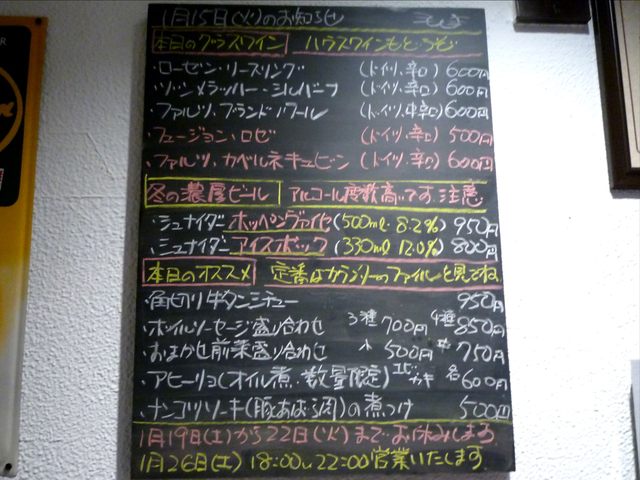 1月15日(火)のお知らせ
本日のグラスワイン ハウスワインもどうぞ
・ローゼン・リースリング (ドイツ、辛口) 600円
・ソンメラッハー・シルバーナ (ドイツ、辛口) 600円
・ファルツ、ブランドノワール (ドイツ、中辛口) 600円
・フュージョン・ロゼ (ドイツ、辛口) 500円
・ファルツ、カベルネキュビン (ドイツ、辛口) 600円
冬の濃厚ビール アルコール度数高いです、注意
・シュナイダー ホッペンヴァイセ (500ml・8.2%) 950円
・シュナイダー アイスボック (330ml 12.0%) 800円
本日のオススメ 定番はカラフリーのファイルを見てね
・角切り牛タンシチュー 950円
・ボイルソーセージ盛り合わせ 3種700円 4種850円
・おまかせ前菜盛り合わせ 小500円 中750円
・アヒージョ(オイル煮・数量限定) エビ カキ 各600円
・ナンコツソーキ(豚あばら肉)の煮つけ 500円
1月19日(土)から22日(火)まで お休みします
1月26日(土) 18:00~22:00営業いたします